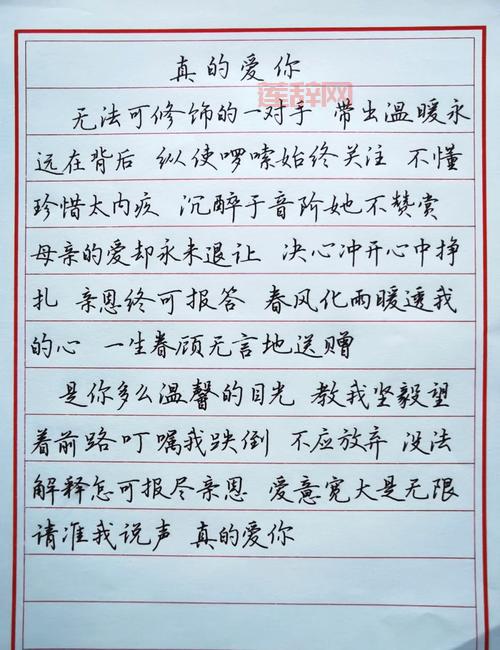 真的爱你
莲辞网
无法可修饰的一对手 带出温暖永
远在背后 纵使啰嗦始终关注 不懂
珍惜太内疚 沉醉于音阶她不赞赏
母亲的爱却永未退让 决心冲开心中挣
扎 亲恩终可报答 春风化雨暖透我
的心 一生眷顾无言地送赠
是你多么温馨的目光 教我坚毅望
着前路 叮嘱我跌倒 不应放弃 没法
解释怎可报尽亲恩 爱意宽大是无限
请准我说声 真的爱你